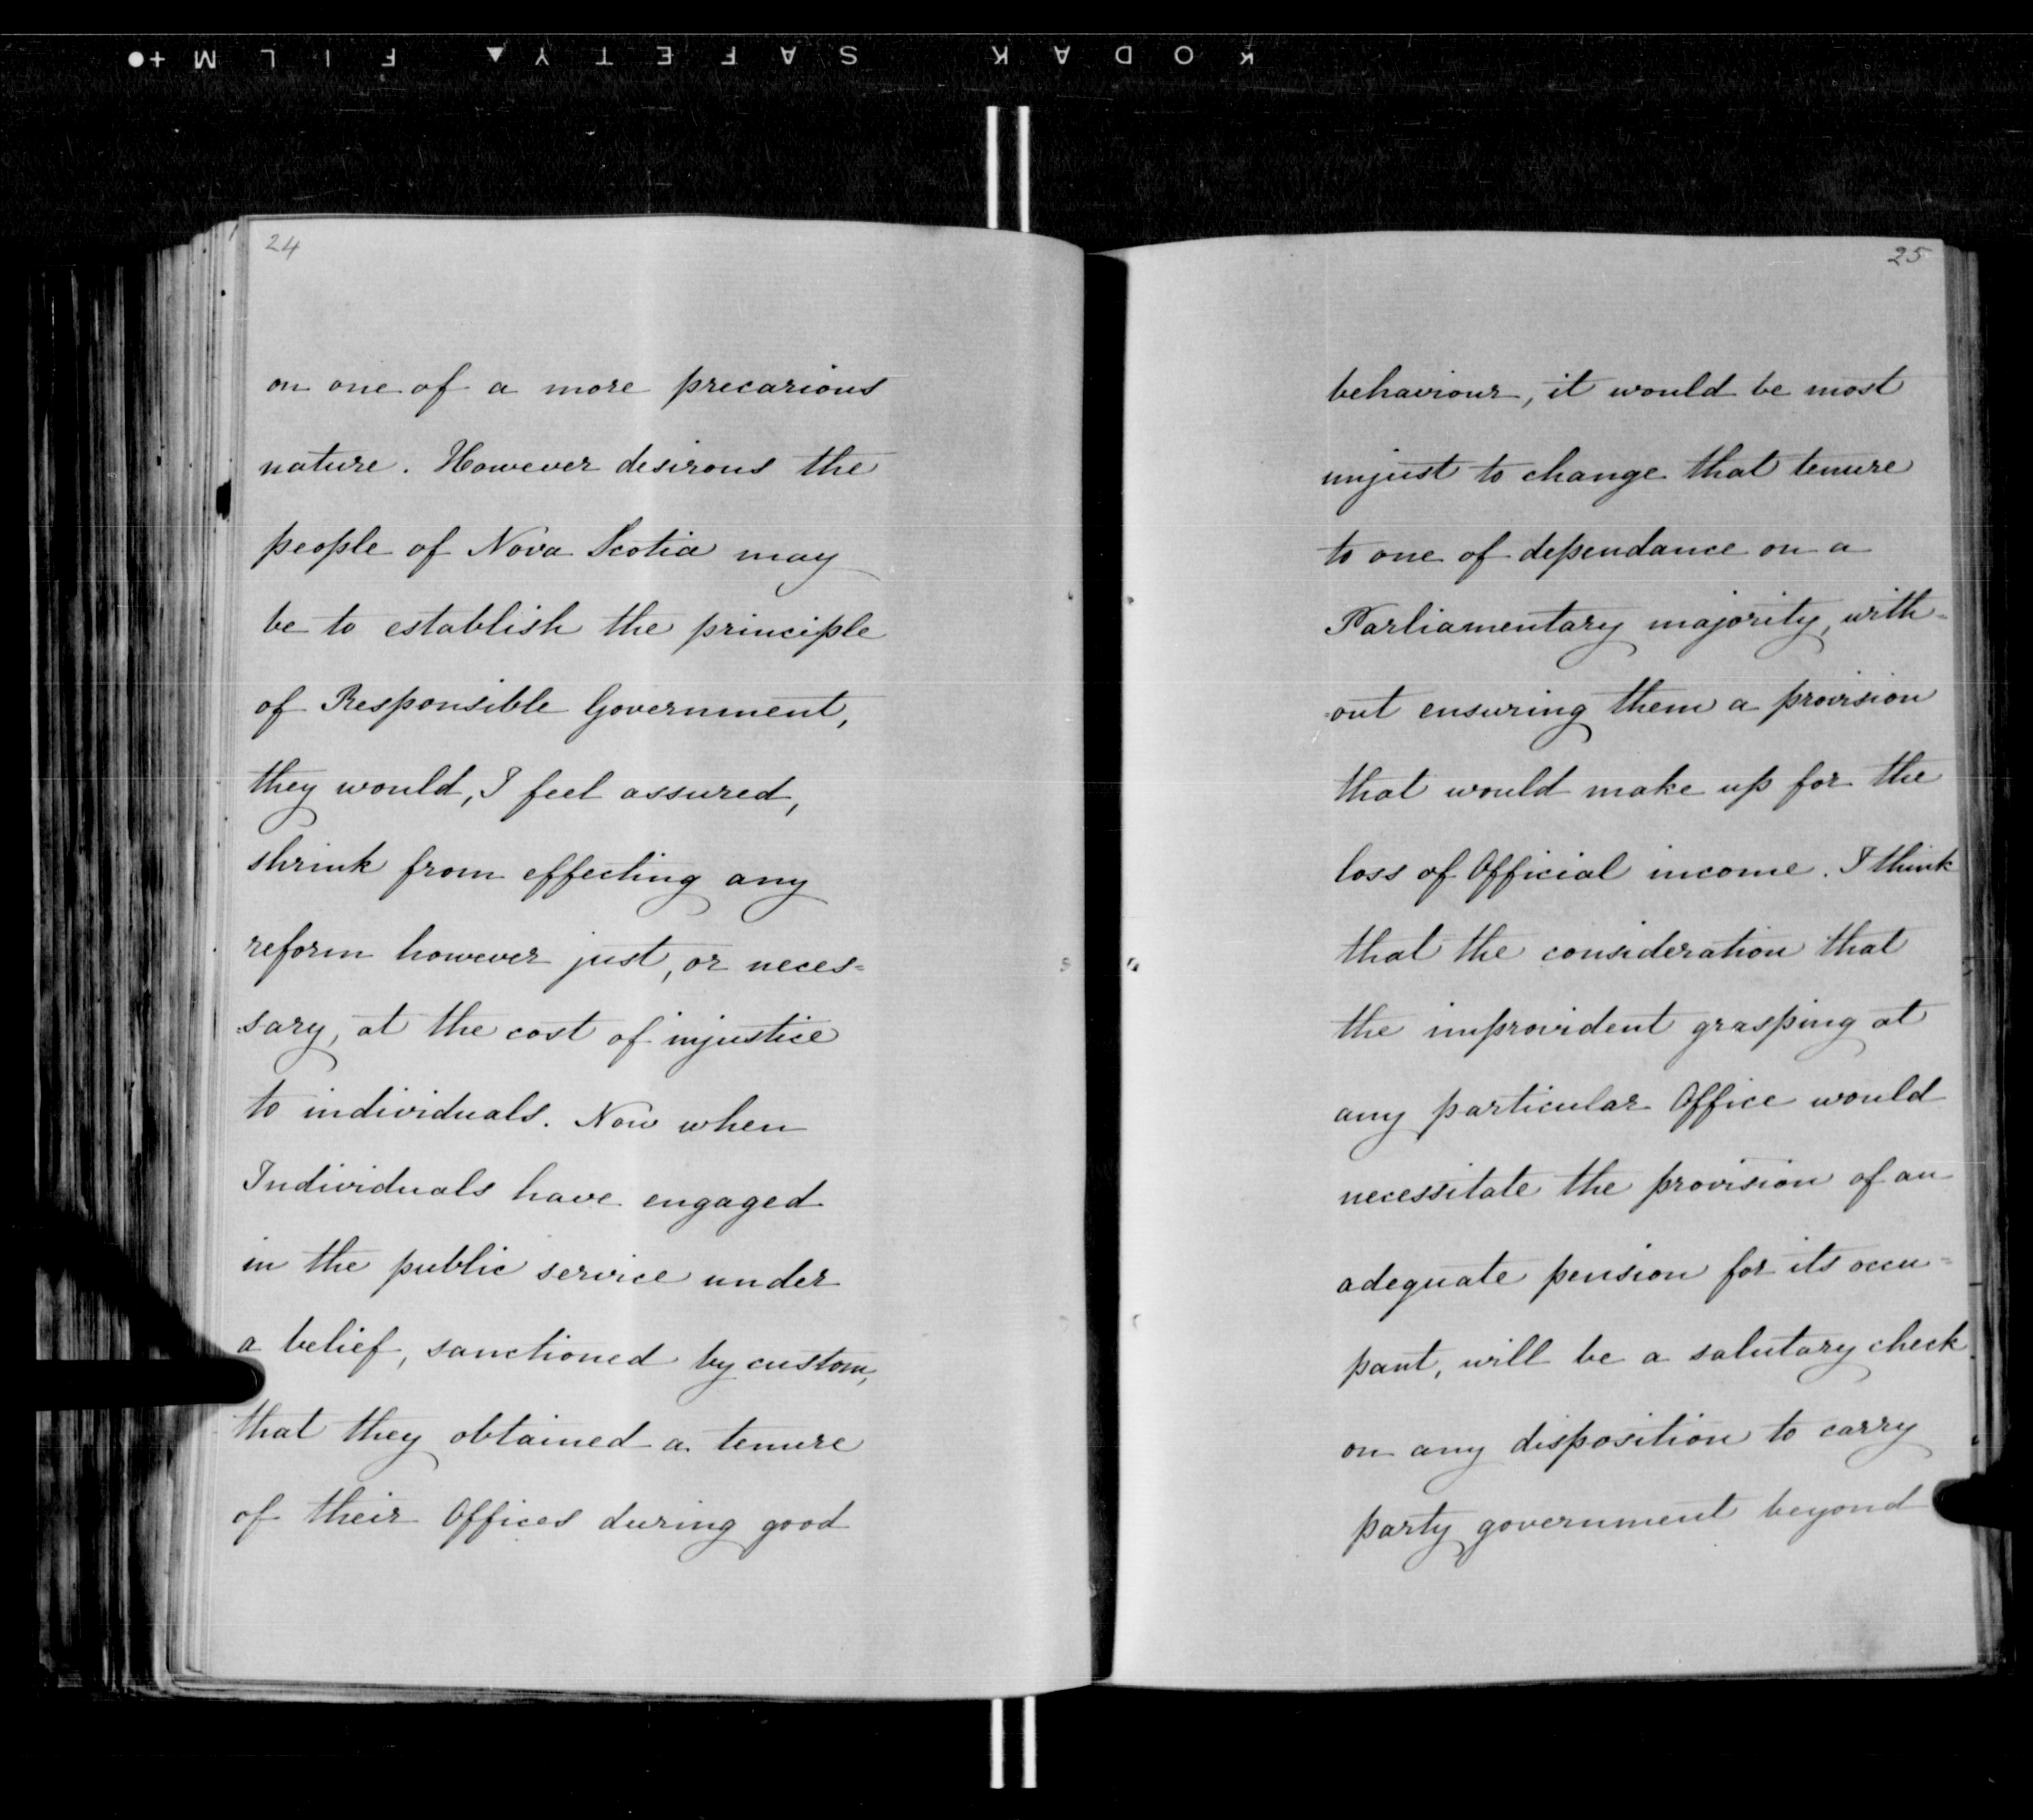 KODAK SAFETY FILM
24
on one of a more precarious
nature. However desirous the
people of Nova Scotia may
be to establish the principle
of Responsible Government,
they would, I feel assured,
shrink from effecting any
reform however just, or neces=
sary, at the cost of injustice
to individuals. Now when
Individuals have engaged
in the public service under
a belief, sanctioned by custom,
that they obtained a tenure
of their Offices during good
25
behaviour, it would be most
unjust to change that tenure
to one of dependance on a
Parliamentary majority, with=
out ensuring them a provision
that would make up for the
loss of Official income. I think
that the consideration that
the improvident grasping at
any particular Office would
necessitate the provision of an
adequate pension for its occu=
pant, will be a salutary check
on any disposition to carry
party government beyond